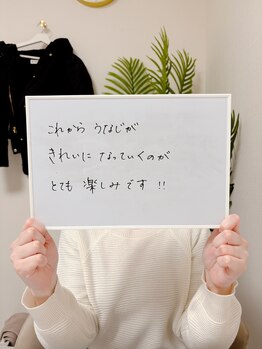 これから うなじが
きれいに なっていくのが
とても 楽しみです !!